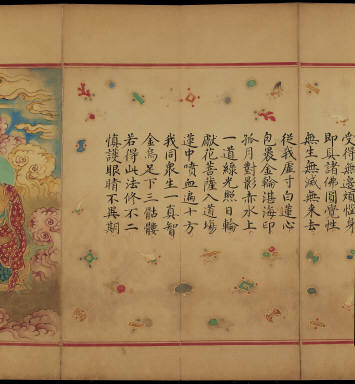 受得無邊煩惱身
即具諸佛圓覺性
無生無滅無來去
從我虛寸白蓮心
包裹金輪湛海印
孤月對影赤水上
一道綠光照日輪
獻花菩薩入道場
蓮中噴血遍十方
我同衆生一真智
金烏足下三骷髏
若得此法修不二
慎護眼睛不與期